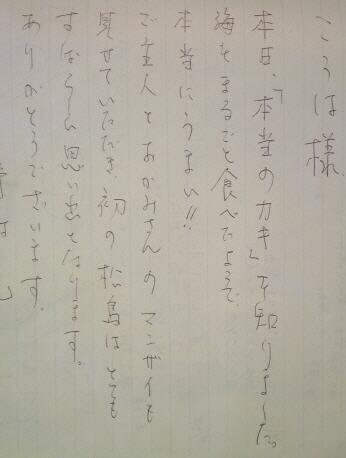 こうは様
本日、「本当のカキ」を知りました。
海をまるごと食べたようで、
本当にうまい!!
ご主人とおかみさんのマンザイも
見せていただき、初の松島はとても
すばらしい思い出となります。
ありがとうございます。